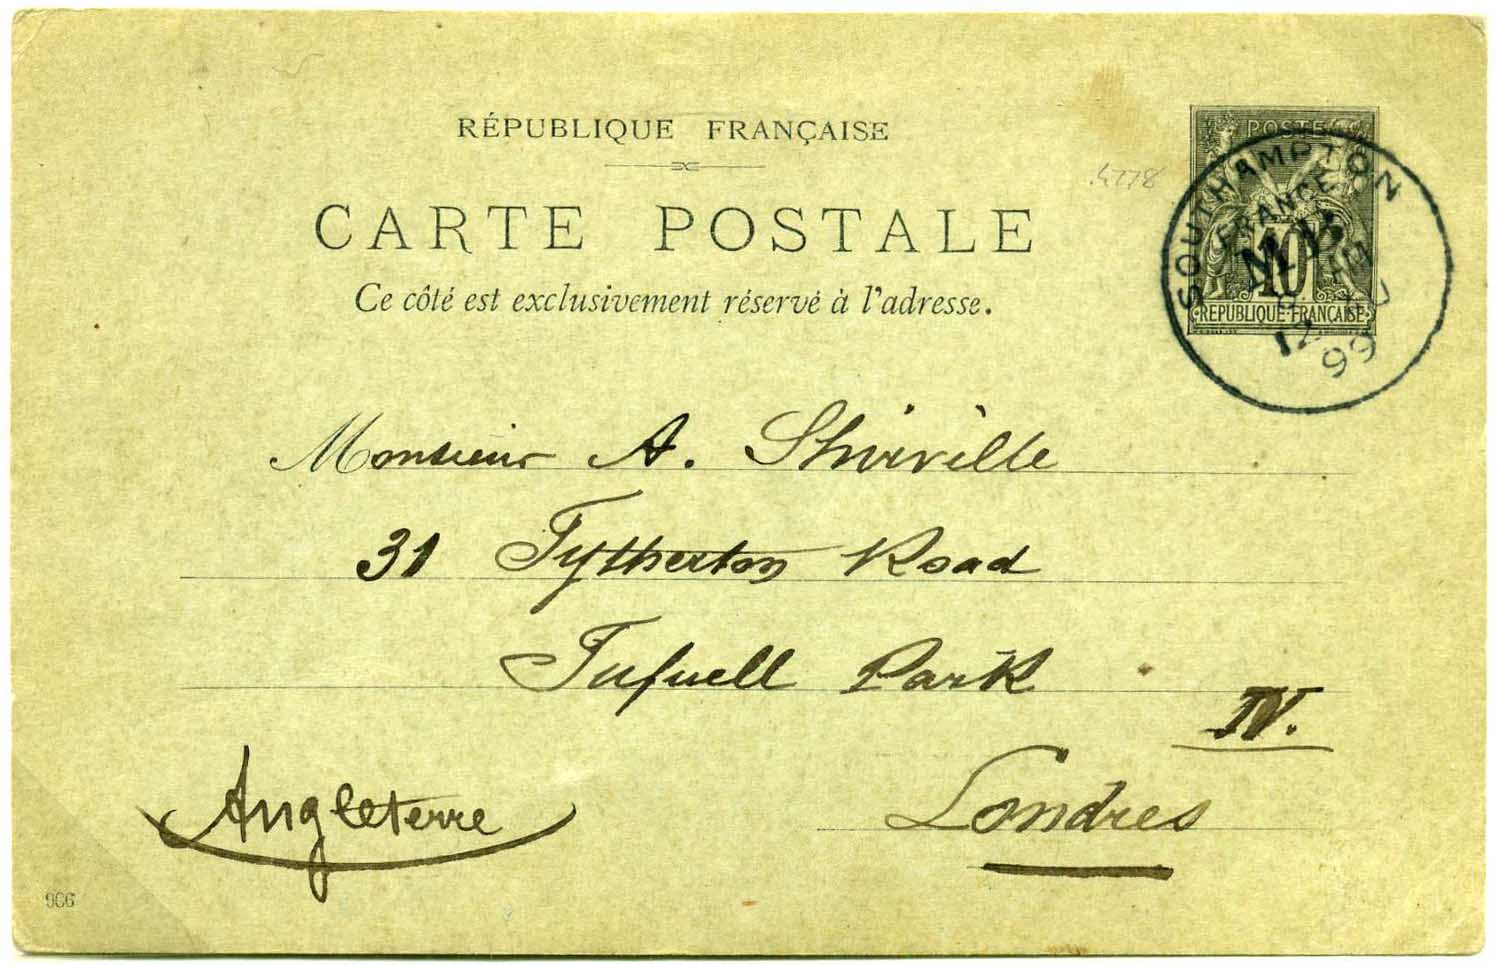 RÉPUBLIQUE FRANÇAISE
CARTE POSTALE
Ce côté est exclusivement réservé à l'adresse.
4278
POSTES
10
RÉPUBLIQUE FRANÇAISE
SOUTHAMPTON
FRANCE
M.B
12
99
Monsieur A. Shirville
31 Tytherton Road
Tufnell Park
N.
Londres
Angleterre
906